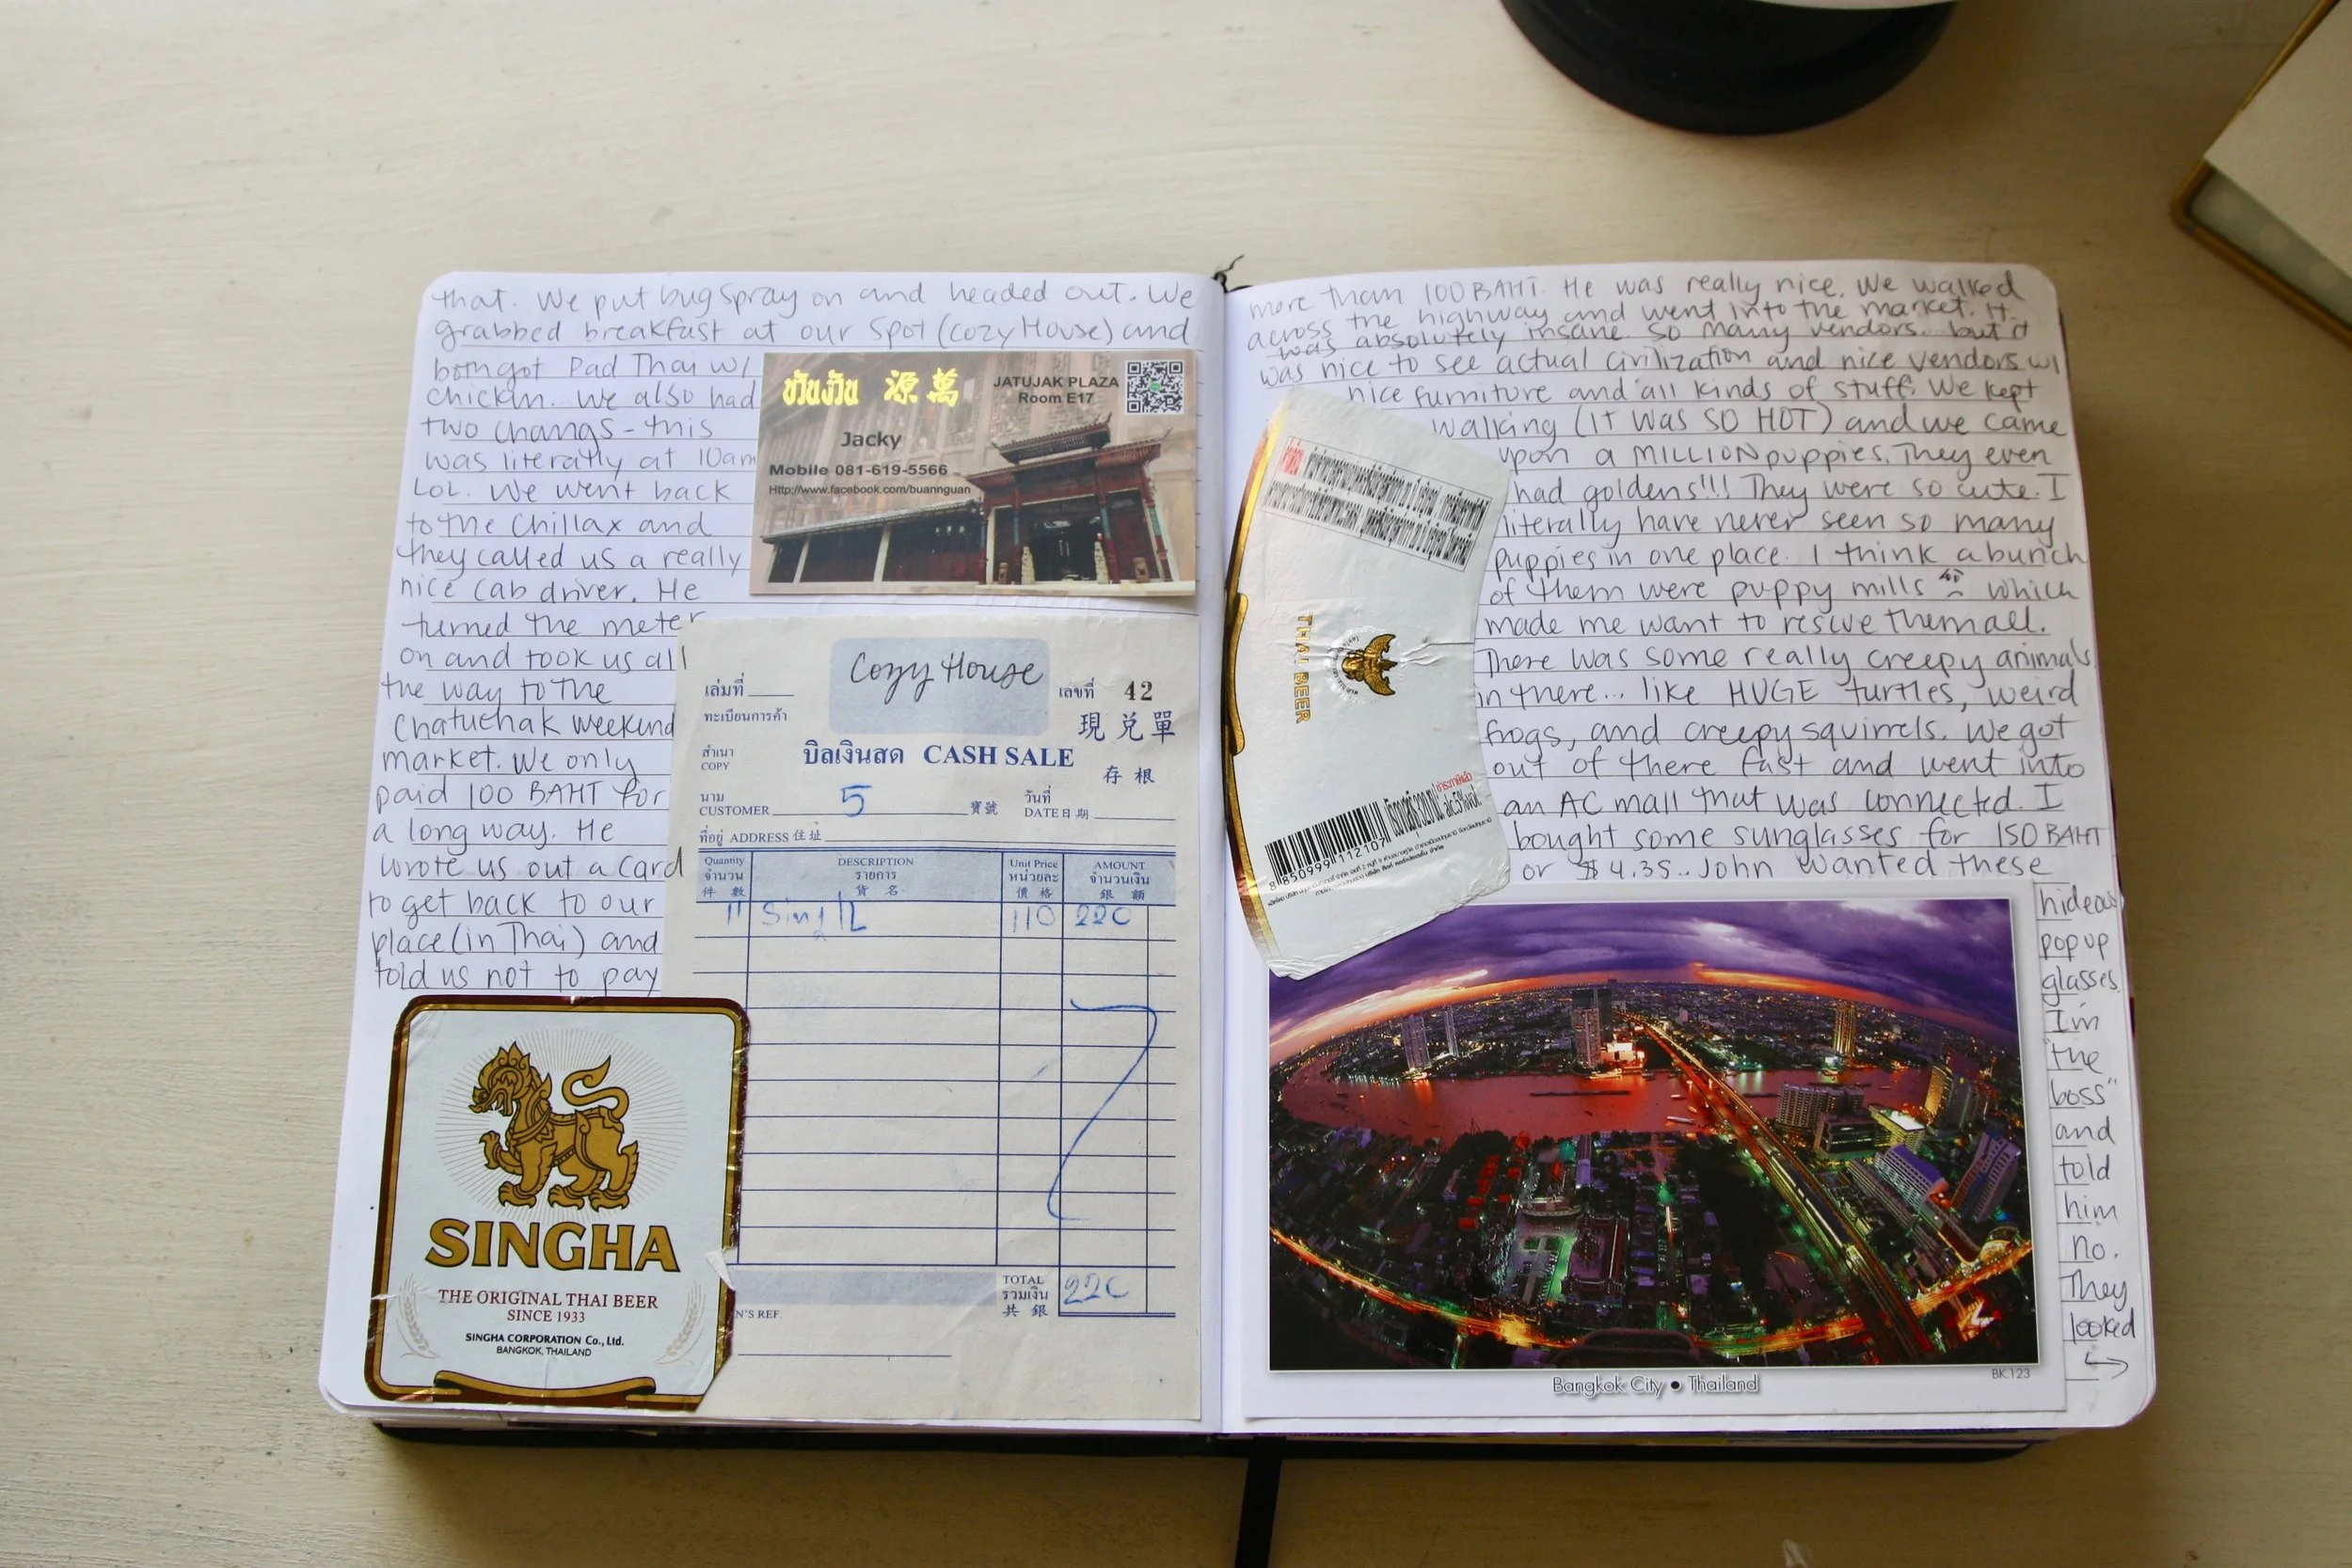 that. We put bug spray on and headed out. We
grabbed breakfast at our spot (cozy House) and
both got Pad Thai w/
chickin. We also had
two changs - this
was literally at 10am
LOL. We went back
to the Chillax and
they called us a really
nice cab driver. He
turned the meter
on and took us all
the way to the
Chatuchak weekend
market. We only
paid 100 BAHT for
a long way. He
wrote us out a card
to get back to our
place (in Thai) and
told us not to pay
源萬
JATUJAK PLAZA
Room E17
Jacky
Mobile 081-619-5566
Http://www.facebook.com/buannguan
Cozy House
เล่มที่
เลขที่ 42
ทะเบียนการค้า
現兌單
สำเนา
COPY
บิลเงินสด CASH SALE
存根
นาม
CUSTOMER 5 寶號
วันที่
DATE日期
ที่อยู่ ADDRESS 住址
Quantity
จำนวน
件數
DESCRIPTION
รายการ
貨名
Unit Price
หน่วยละ
價格
AMOUNT
จำนวนเงิน
銀額
110 220
TOTAL
รวมเงิน
共銀
220
N'S REF.
SINGHA
THE ORIGINAL THAI BEER
SINCE 1933
SINGHA CORPORATION Co., Ltd.
BANGKOK, THAILAND
more than 100 BAHT. He was really nice. We walked
across the highway and went into the market. It
was absolutely insane. So many vendors. but it
was nice to see actual civilization and nice vendors w/
nice furniture and all kinds of stuff. We kept
walking (IT WAS SO HOT) and we came
upon a MILLION puppies. They even
had goldens!!! They were so cute. I
literally have never seen so many
puppies in one place. I think a bunch
of them were puppy mills which
made me want to rescue them all.
There was some really creepy animals
in there... like HUGE turtles, weird
frogs, and creepy squirrels. We got
out of there fast and went into
an AC mall that was connected. I
bought some sunglasses for 150 BAHT
or $4.35.. John wanted these
hideous
pop up
glasses.
I'm
"the
boss"
and
told
him
no.
They
looked
THAI BEER
8 850999 112107
alc.5%vol.
Bangkok City • Thailand
BK.123